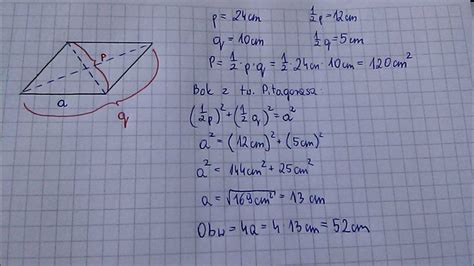 p = 24cm
½p = 12cm
q = 10cm
½q = 5cm
P = ½ · p · q = ½ · 24cm · 10cm = 120cm²
Bok z tw. Pitagorasa:
(½p)² + (½q)² = a²
a² = (12cm)² + (5cm)²
a² = 144cm² + 25cm²
a = √169cm² = 13cm
Obw = 4a = 4 · 13cm = 52cm
p
a
q